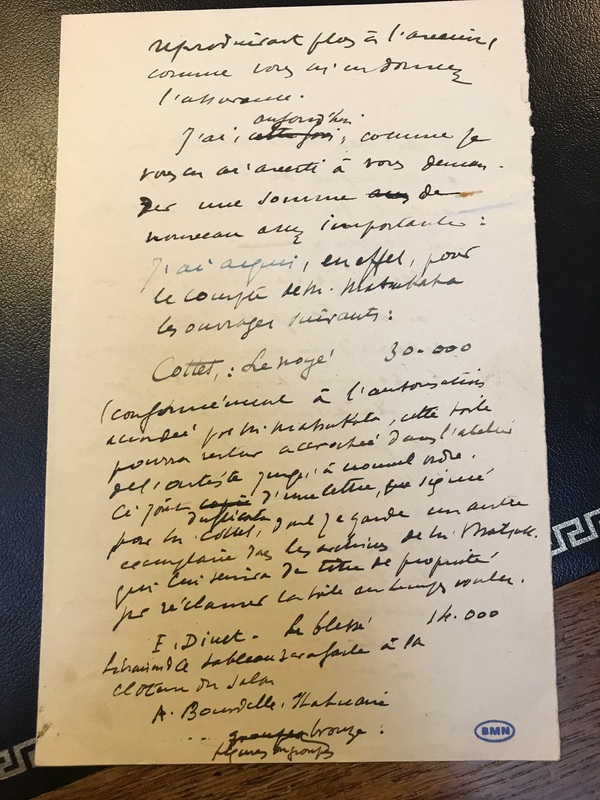 reproduiront plus à l'avenir,
comme vous m'en donnez
l'assurance.
aujourd'hui
J'ai, cette fois, comme je
vous en ai averti à vous deman-
der une somme de
nouveau assez importante :
J'ai acquis, en effet, pour
le compte de M. Matsukata
les ouvrages suivants :
Cottet, : Le noyé 30.000
(conformément à l'autorisation
accordée par M. Matsukata, cette toile
pourra rester accrochée dans l'atelier
de l'artiste jusqu'à nouvel ordre.
Ci joint copie d'une lettre, signée
duplicata
par M. Cottet, dont je garde un autre
exemplaire dans les archives de M. Matsuk.
qui lui servira de titre de propriété
pr réclamer la toile en temps voulu.
E. Dinet - Le blessé 14.000
tableau sera à la
cloture du Salon
A. Bourdelle, statuaire
groupes bronze :
figures ou groupes
BMN